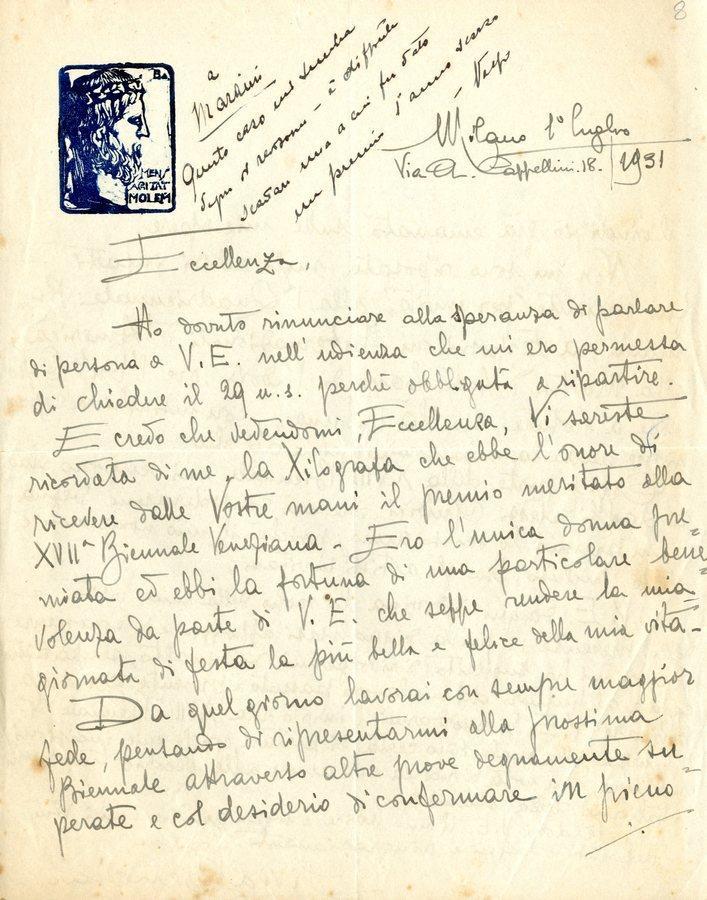 8
a
Maraini
Questo caso mi sembra
degno di
scartare una a cui fu dato
un premio l'anno scorso
Volpi
BA.
MENS
AGITAT
MOLEM
Milano 1° luglio
Via A. Cappellini. 18. 1931
Eccellenza,
Ho dovuto rinunciare alla speranza di parlare
di persona a V. E. nell'udienza che mi ero permessa
di chiedere il 29 u. s. perchè obbligata a ripartire.
E credo che vedendomi, Eccellenza, Vi sareste
ricordata di me, la Xilografa che ebbe l'onore di
ricevere dalle Vostre mani il premio meritato alla
XVIIª Biennale Veneziana - Ero l'unica donna pre=
miata ed ebbi la fortuna di una particolare bene=
volenza da parte di V. E. che seppe rendere la mia
giornata di festa la più bella e felice della mia vita -
Da quel giorno lavorai con sempre maggior
fede, pensando di ripresentarmi alla prossima
Biennale attraverso altre prove degnamente su=
perate e col desiderio di confermare in pieno